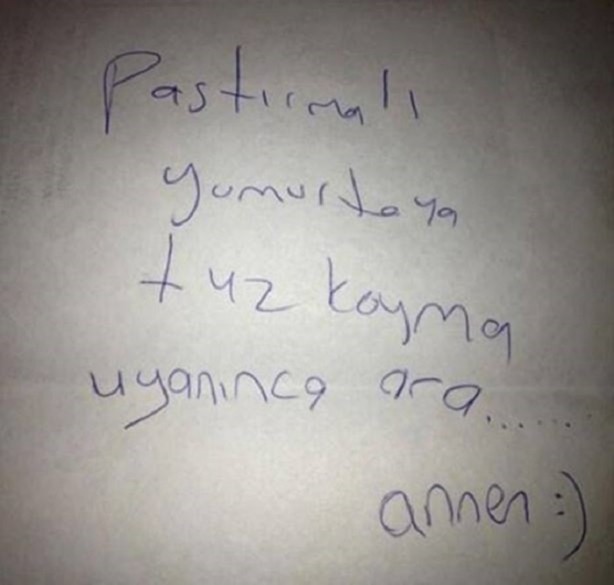 Pastırmalı
yumurtaya
tuz koyma
uyanınca ara......
annen :)